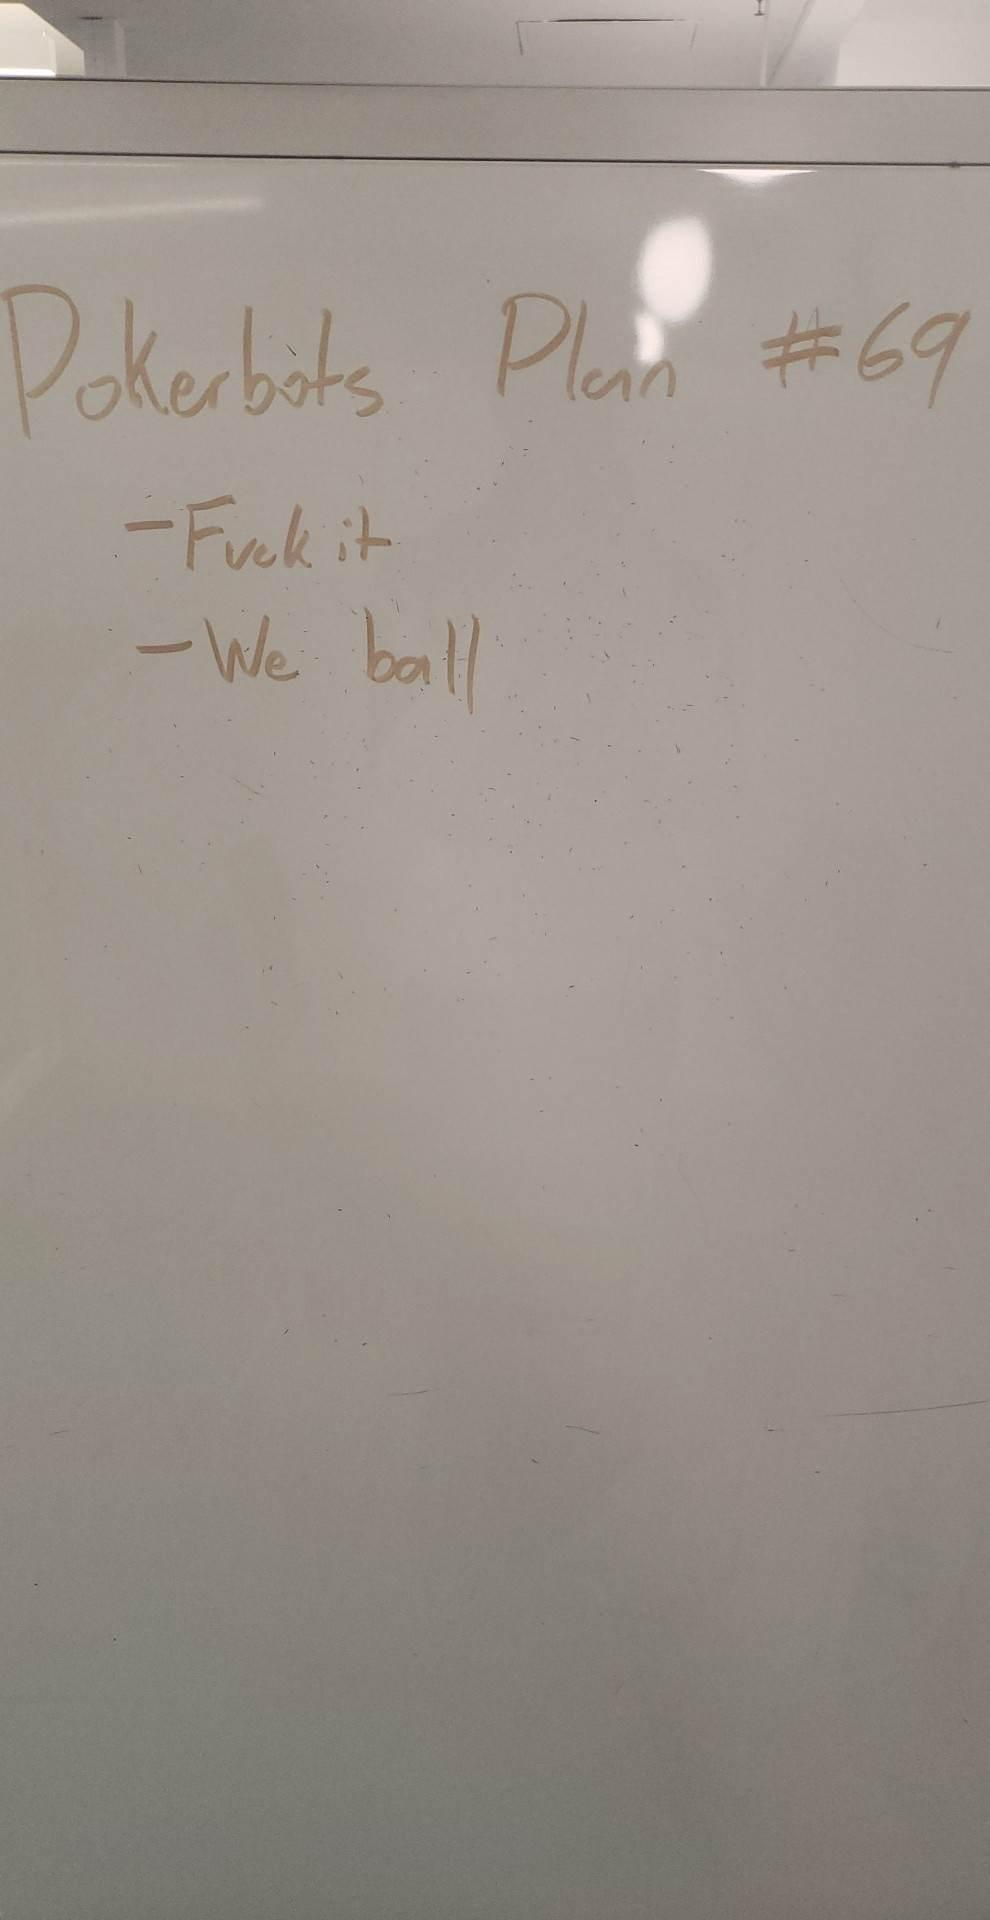 Pokerbots Plan #69
- Fuck it
- We ball